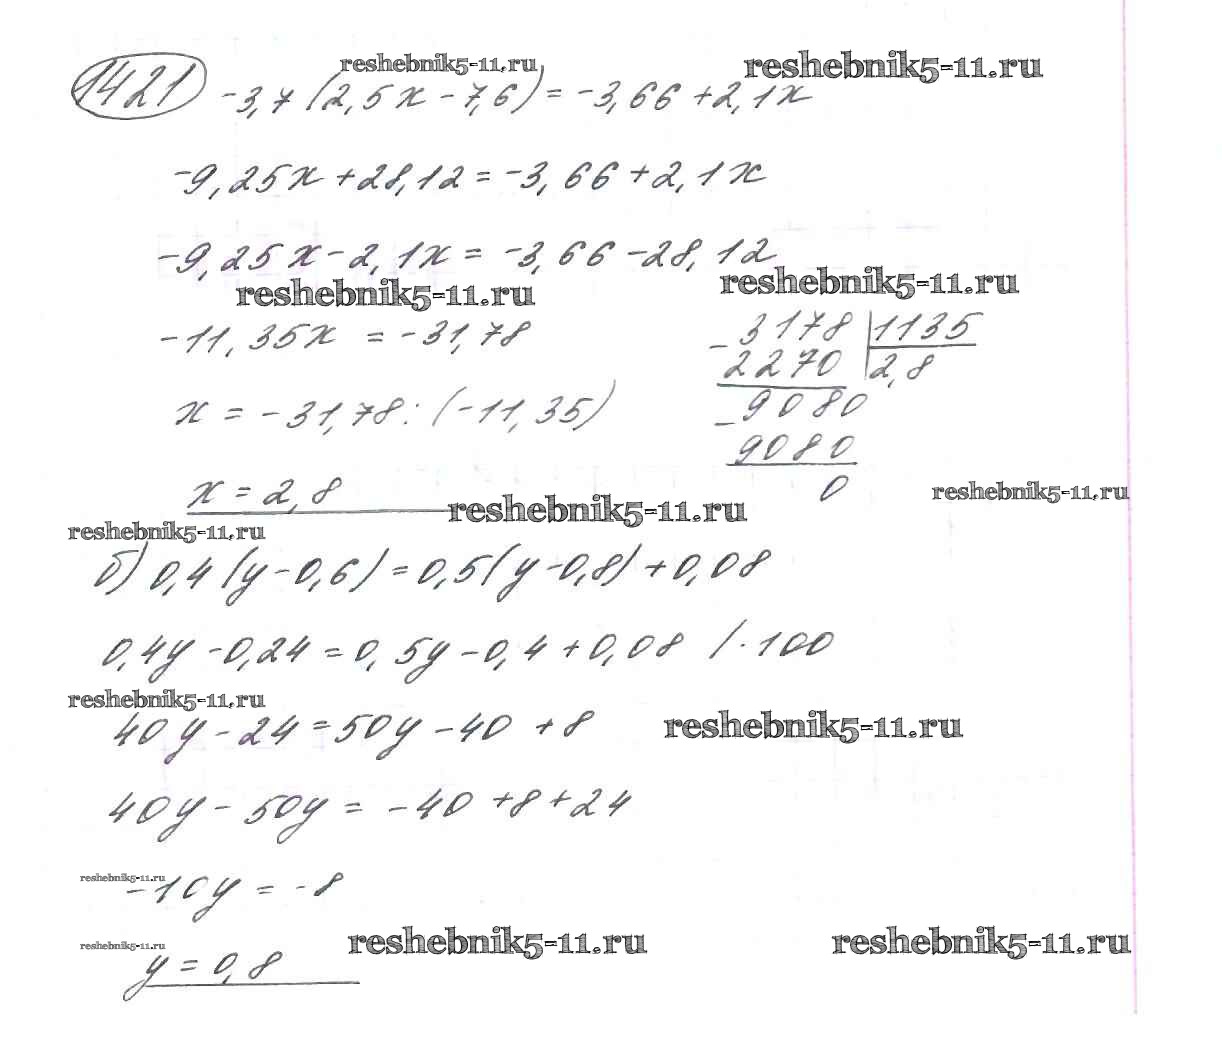 reshebnik5-11.ru reshebnik5-11.ru
1421 -3,7(2,5x-7,6)=-3,66+2,1x
-9,25x+28,12=-3,66+2,1x
-9,25x-2,1x=-3,66-28,12
reshebnik5-11.ru reshebnik5-11.ru
-11,35x=-31,78
x=-31,78:(-11,35)
x=2,8
-3178|1135
2270|2,8
-9080
9080
0
reshebnik5-11.ru
reshebnik5-11.ru
reshebnik5-11.ru
б) 0,4(y-0,6)=0,5(y-0,8)+0,08
0,4y-0,24=0,5y-0,4+0,08 /·100
reshebnik5-11.ru
40y-24=50y-40+8
reshebnik5-11.ru
40y-50y=-40+8+24
reshebnik5-11.ru
-10y=-8
reshebnik5-11.ru reshebnik5-11.ru reshebnik5-11.ru
y=0,8